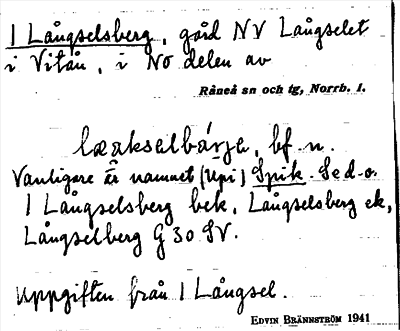 1 Långselsberg, gård NV Långselet
i Vitån, i NO delen av
Råneå sn och tg, Norrb. l.
bf. n.
Vanligare är namnet (Upi) Spik. Se d. o.
1 Långselsberg bek, Långselsberg ek,
Långselberg G 30 SV.
Uppgiften från 1 Långsel.
EDVIN BRÄNNSTRÖM 1941